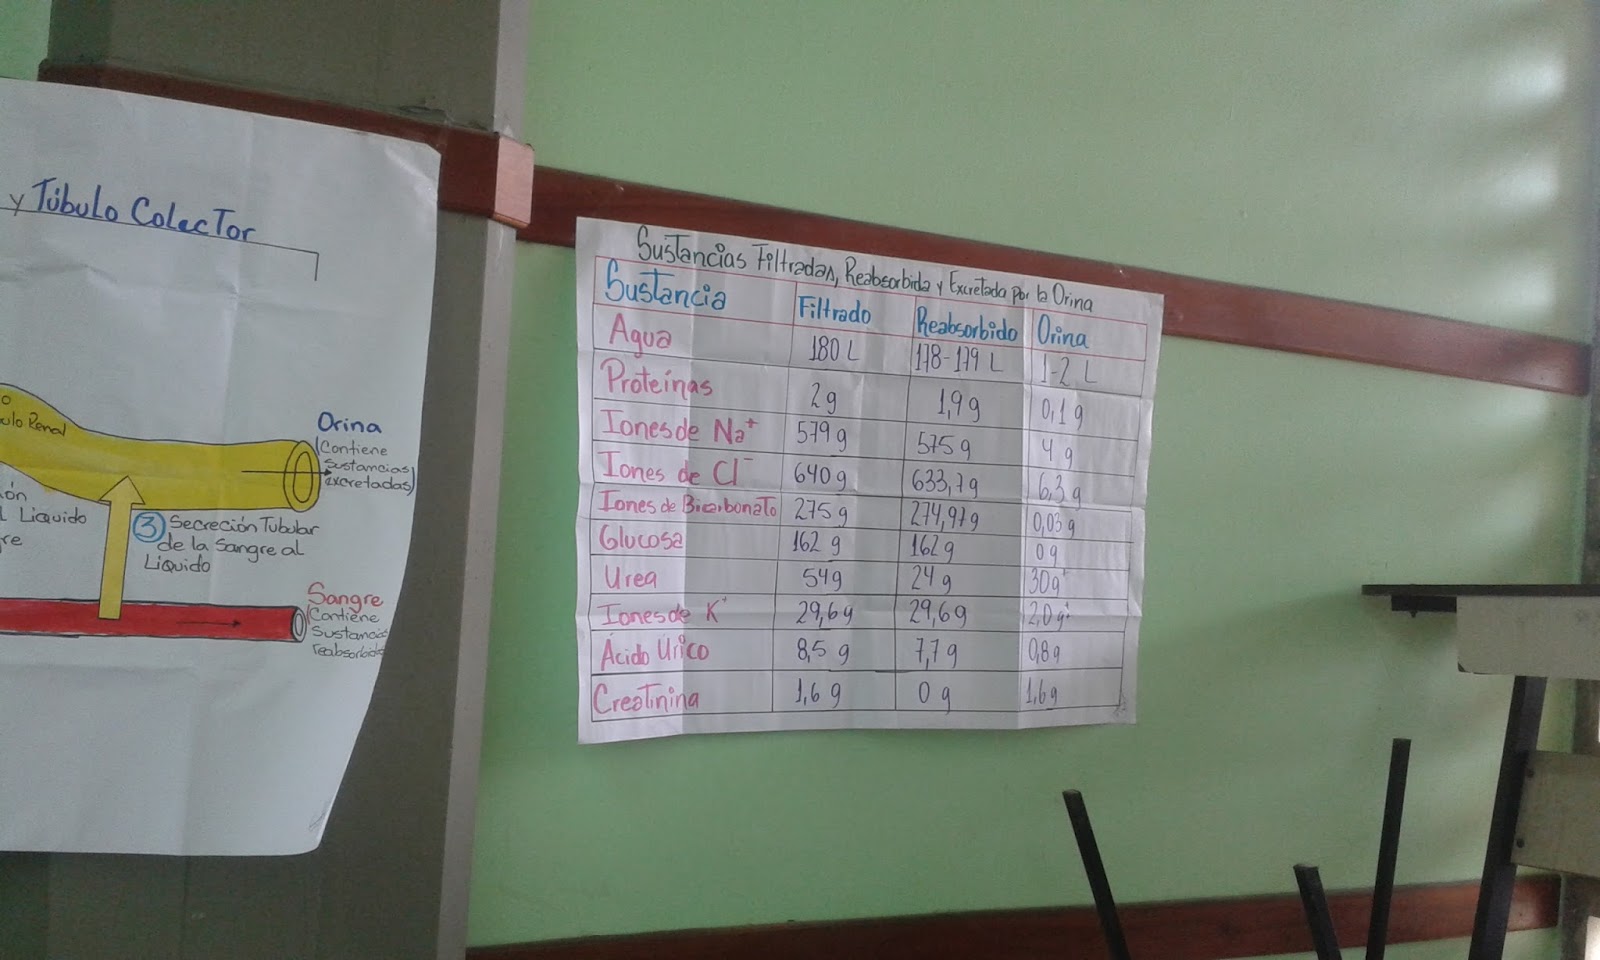 y Túbulo Colector
Renal
Orina
(Contiene
Sustancias
excretadas)
l Liquido
3 Secreción Tubular
de la Sangre al
Liquido
Sangre
(Contiene
Sustancias
reabsorbida
Sustancias Filtradas, Reabsorbida y Excretada por la Orina
Sustancia Filtrado Reabsorbido Orina
Agua 180 L 178-179 L 1-2 L
Proteínas 2g 1,9g 0,1g
Iones de Na+ 579g 575g 4g
Iones de Cl- 640g 633,7g 6,3g
Iones de Bicarbonato 275g 274,97g 0,03g
Glucosa 162 g 162g 0g
Urea 54g 24g 30g+
Iones de K+ 29,6g 29,6g 2,0g+
Ácido Úrico 8,5 g 7,7g 0,8g
Creatinina 1,6g 0g 1,6g